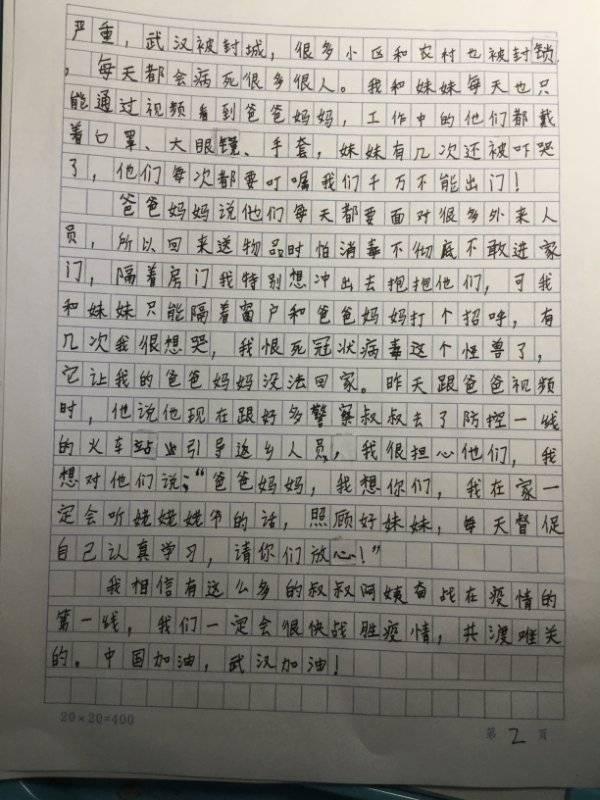 严重，武汉被封城，很多小区和农村也被封锁
，每天都会病死很多很人。我和妹妹每天也只
能通过视频看到爸爸妈妈，工作中的他们都戴
着口罩、大眼镜、手套，妹妹有几次还被吓哭
了，他们每次都要叮嘱我们千万不能出门！
爸爸妈妈说他们每天都要面对很多外来人
员，所以回来送物品时怕消毒不彻底不敢进家
门，隔着房门我特别想冲出去抱抱他们，可我
和妹妹只能隔着窗户和爸爸妈妈打个招呼，有
几次我很想哭，我恨死冠状病毒这个怪兽了，
它让我的爸爸妈妈没法回家。昨天跟爸爸视频
时，他说他现在跟好多警察叔叔去了防控一线
的火车站业引导返乡人员，我很担心他们，我
想对他们说；“爸爸妈妈，我想你们，我在家一
定会听姥姥姥爷的话，照顾好妹妹，每天督促
自己认真学习，请你们放心！”
我相信有这么多的叔叔阿姨奋战在疫情的
第一线，我们一定会很快战胜疫情，共渡难关
的。中国加油，武汉加油！
20×20=400
第 2 页